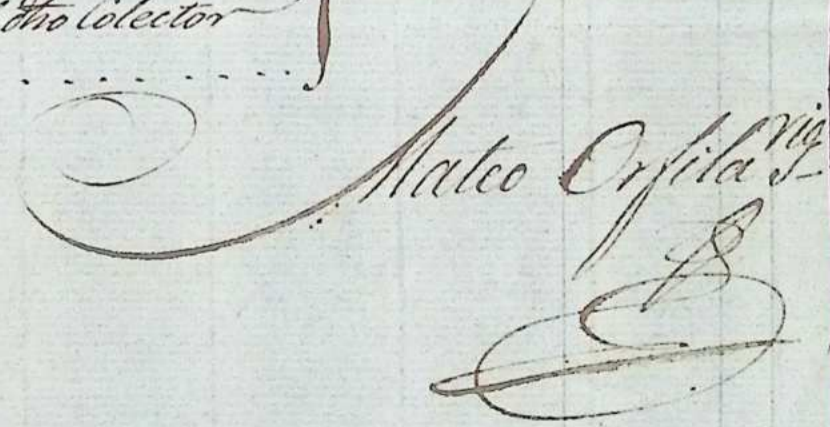 dho Colector
Mateo Orfila